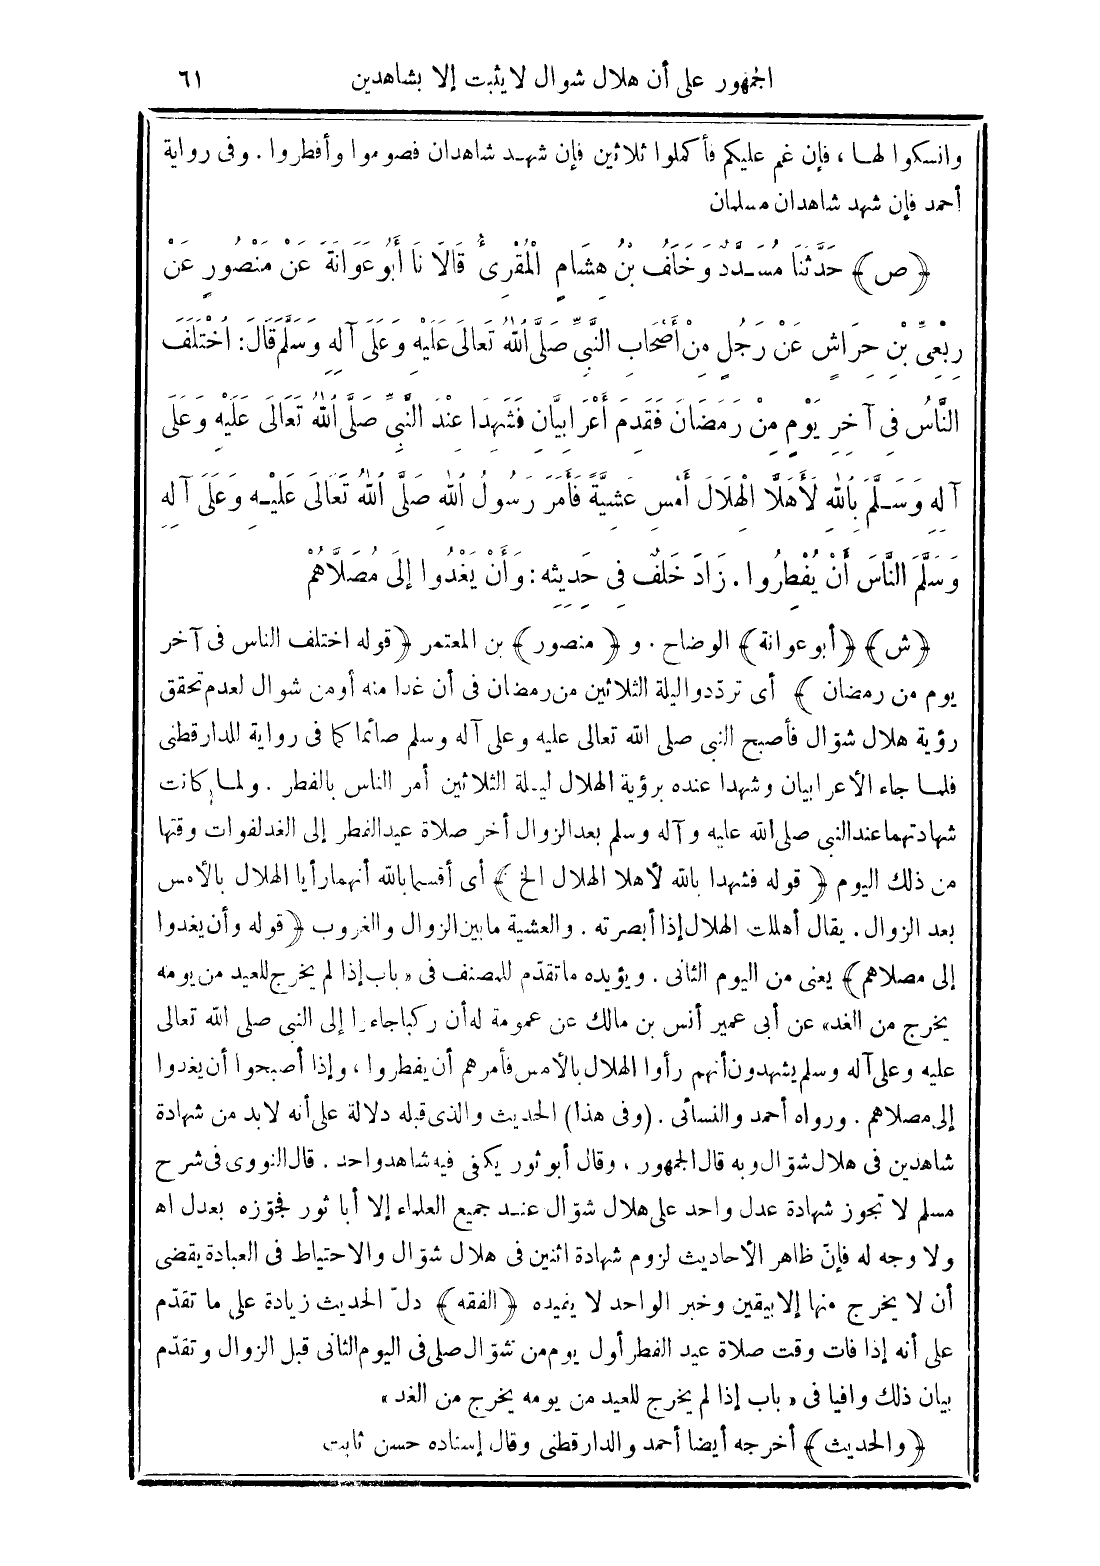 الجمهور على أن هلال شوال لا يثبت إلا بشاهدين ٦١
وانسكوا لهـا ، فإن غم عليكم فأكملوا ثلاثين فإن شهـد شاهدان فصوموا وأفطروا . وفى رواية
أحمد فإن شهد شاهدان مسلمان
﴿ص﴾ حَدَّثَنَا مُسَدَّدٌ وَخَلَفُ بْنُ هِشَامٍ الْمُقْرِئُ قَالَا نَا أَبُو عَوَانَةَ عَنْ مَنْصُورٍ عَنْ
رِبْعِىِّ بْنِ حِرَاشٍ عَنْ رَجُلٍ مِنْ أَصْحَابِ النَّبِىِّ صَلَّى اللهُ تَعَالَى عَلَيْهِ وَعَلَى آلِهِ وَسَلَّمَ قَالَ: اخْتَلَفَ
النَّاسُ فِى آخِرِ يَوْمٍ مِنْ رَمَضَانَ فَقَدِمَ أَعْرَابِيَّانِ فَشَهِدَا عِنْدَ النَّبِىِّ صَلَّى اللهُ تَعَالَى عَلَيْهِ وَعَلَى
آلِهِ وَسَـلَّمَ بِاللهِ لَأَهَلَّا الْهِلَالَ أَمْسِ عَشِيَّةً فَأَمَرَ رَسُولُ اللهِ صَلَّى اللهُ تَعَالَى عَلَيْـهِ وَعَلَى آلِهِ
وَسَلَّمَ النَّاسَ أَنْ يُفْطِرُوا . زَادَ خَلَفٌ فِى حَدِيثِهِ : وَأَنْ يَغْدُوا إِلَى مُصَلَّاهُمْ
﴿ش﴾ ﴿أبو عوانة﴾ الوضاح . و ﴿ منصور﴾ بن المعتمر ﴿قوله اختلف الناس فى آخر
يوم من رمضان ﴾ أى تردّدوا ليلة الثلاثين من رمضان فى أن غدا منه أو من شوال لعدم تحقق
رؤية هلال شوّال فأصبح النبى صلى الله تعالى عليه وعلى آله وسلم صائما كما فى رواية للدارقطنى
فلمـا جاء الأعرابيان وشهدا عنده برؤية الهلال ليـلة الثلاثين أمر الناس بالفطر . ولمـا كانت
شهادتهما عند النبى صلى الله عليه وآله وسلم بعد الزوال أخر صلاة عيد الفطر إلى الغد لفوات وقتها
من ذلك اليوم ﴿ قوله فشهدا بالله لأهلا الهلال الخ ﴾ أى أقسما بالله أنهما رأيا الهلال بالأمس
بعد الزوال . يقال أهللت الهلال إذا أبصرته . والعشية ما بين الزوال والغروب ﴿قوله وأن يغدوا
إلى مصلاهم﴾ يعنى من اليوم الثانى . ويؤيده ما تقدّم للمصنف فى « باب إذا لم يخرج للعيد من يومه
يخرج من الغد» عن أبى عمير أنس بن مالك عن عمومة له أن ركبا جاءوا إلى النبى صلى الله تعالى
عليه وعلى آله وسلم يشهدون أنهم رأوا الهلال بالأمس فأمرهم أن يفطروا ، وإذا أصبحوا أن يغدوا
إلى مصلاهم . ورواه أحمد والنسائى . (وفى هذا) الحديث والذى قبله دلالة على أنه لابد من شهادة
شاهدين فى هلال شوّال وبه قال الجمهور ، وقال أبو ثور يكفى فيه شاهد واحد . قال النووى فى شرح
مسلم لا تجوز شهادة عدل واحد على هلال شوّال عنـد جميع العلماء إلا أبا ثور فجوّزه بعدل اه
ولا وجه له فإنّ ظاهر الأحاديث لزوم شهادة اثنين فى هلال شوّال والاحتياط فى العبادة يقضى
أن لا يخرج منها إلا بيقين وخبر الواحد لا يفيده ﴿الفقه﴾ دلّ الحديث زيادة على ما تقدّم
على أنه إذا فات وقت صلاة عيد الفطر أول يوم من شوّال صلى فى اليوم الثانى قبل الزوال وتقدّم
بيان ذلك وافيا فى « باب إذا لم يخرج للعيد من يومه يخرج من الغد »
﴿والحديث﴾ أخرجه أيضا أحمد والدارقطنى وقال إسناده حسن ثابت